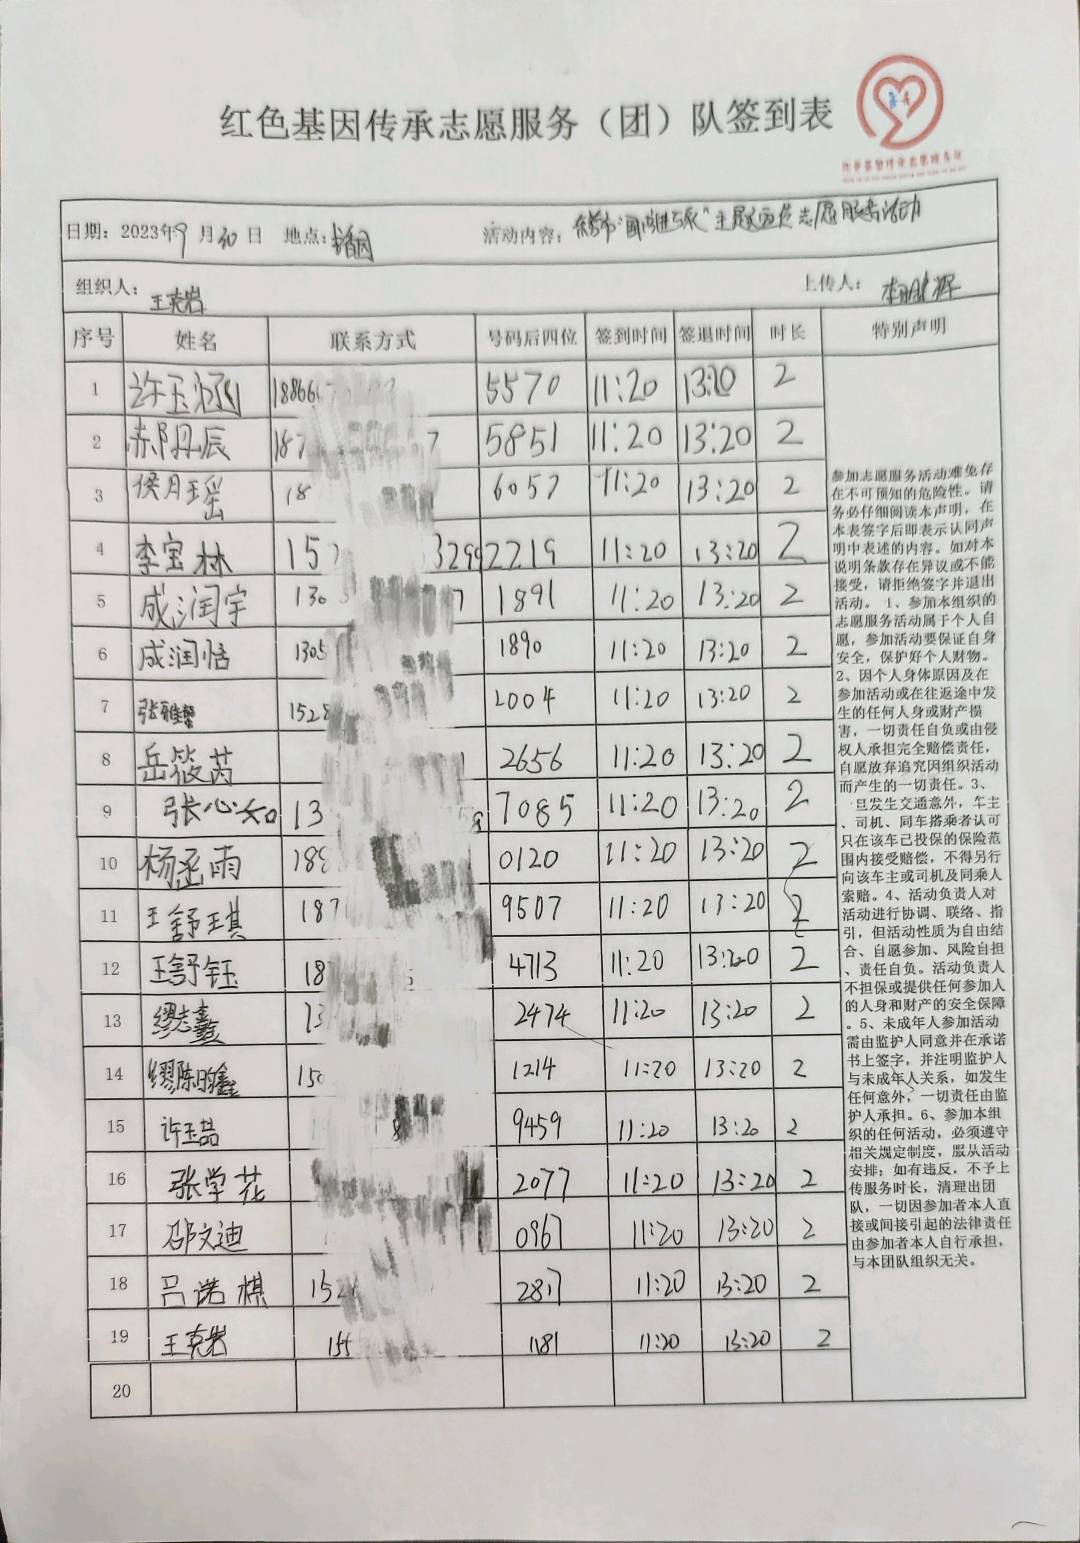 红色基因传承志愿服务（团）队签到表
红色基因传承志愿服务队
日期：2023年9月30日 地点：书香园 活动内容：
组织人：王克岩 上传人：
序号 姓名 联系方式 号码后四位 签到时间 签退时间 时长 特别声明
1 许玉涵 18866 5570 11:20 13:20 2
2 郝丹辰 187 7 5851 11:20 13:20 2
3 侯月瑶 18 6057 11:20 13:20 2
4 李宝林 15 3299 2219 11:20 13:20 2
5 成润宇 130 7 1891 11:20 13:20 2
6 成润恬 1305 1890 11:20 13:20 2
7 张雅馨 1528 2004 11:20 13:20 2
8 岳筱芮 2656 11:20 13:20 2
9 张心如 13 7085 11:20 13:20 2
10 杨丞雨 189 0120 11:20 13:20 2
11 王舒琪 187 9507 11:20 13:20 2
12 王舒钰 187 4713 11:20 13:20 2
13 缪志鑫 13 2474 11:20 13:20 2
14 缪陈昀鑫 150 1214 11:20 13:20 2
15 许玉喆 8 9459 11:20 13:20 2
16 张学花 2077 11:20 13:20 2
17 邵文迪 0967 11:20 13:20 2
18 吕诺棋 152 2817 11:20 13:20 2
19 王克岩 155 1181 11:20 13:20 2
20
参加志愿服务活动难免存
在不可预知的危险性。请
务必仔细阅读本声明，在
本表签字后即表示认同声
明中表述的内容。如对本
说明条款存在异议或不能
接受，请拒绝签字并退出
活动。 1、参加本组织的
志愿服务活动属于个人自
愿，参加活动要保证自身
安全，保护好个人财物。
2、因个人身体原因及在
参加活动或在往返途中发
生的任何人身或财产损
害，一切责任自负或由侵
权人承担完全赔偿责任，
自愿放弃追究因组织活动
而产生的一切责任。3、
一旦发生交通意外，车主
、司机、同车搭乘者认可
只在该车已投保的保险范
围内接受赔偿，不得另行
向该车主或司机及同乘人
索赔。4、活动负责人对
活动进行协调、联络、指
引，但活动性质为自由结
合、自愿参加、风险自担
、责任自负。活动负责人
不担保或提供任何参加人
的人身和财产的安全保障
。5、未成年人参加活动
需由监护人同意并在承诺
书上签字，并注明监护人
与未成年人关系，如发生
任何意外，一切责任由监
护人承担。6、参加本组
织的任何活动，必须遵守
相关规定制度，服从活动
安排；如有违反，不予上
传服务时长，清理出团
队，一切因参加者本人直
接或间接引起的法律责任
由参加者本人自行承担，
与本团队组织无关。